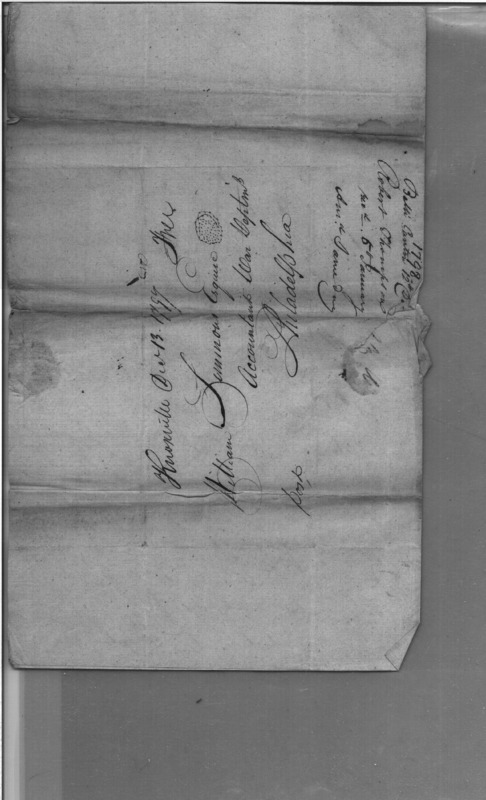 Knoxville Decr 13. 1797 Free
William Simmons Esquire
Accountant War Departmt
Philadelphia
Post
1798
Robert
rec'd. 5th January
Ans. Same Day